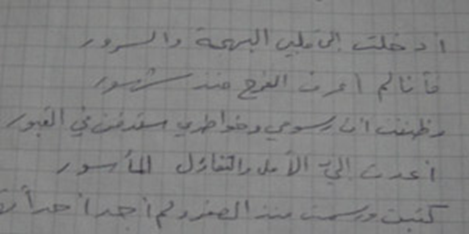 ادخلت الى قلبي البهجة والسرور
فأنا لم اعرف الفرح منذ شهور
وظننت أن رسومي وخواطري ستدفن في القبور
أعدت إليّ الأمل والتفاؤل المأسور
كتبت ورسمت منذ الصغر ولم أجد أحداً